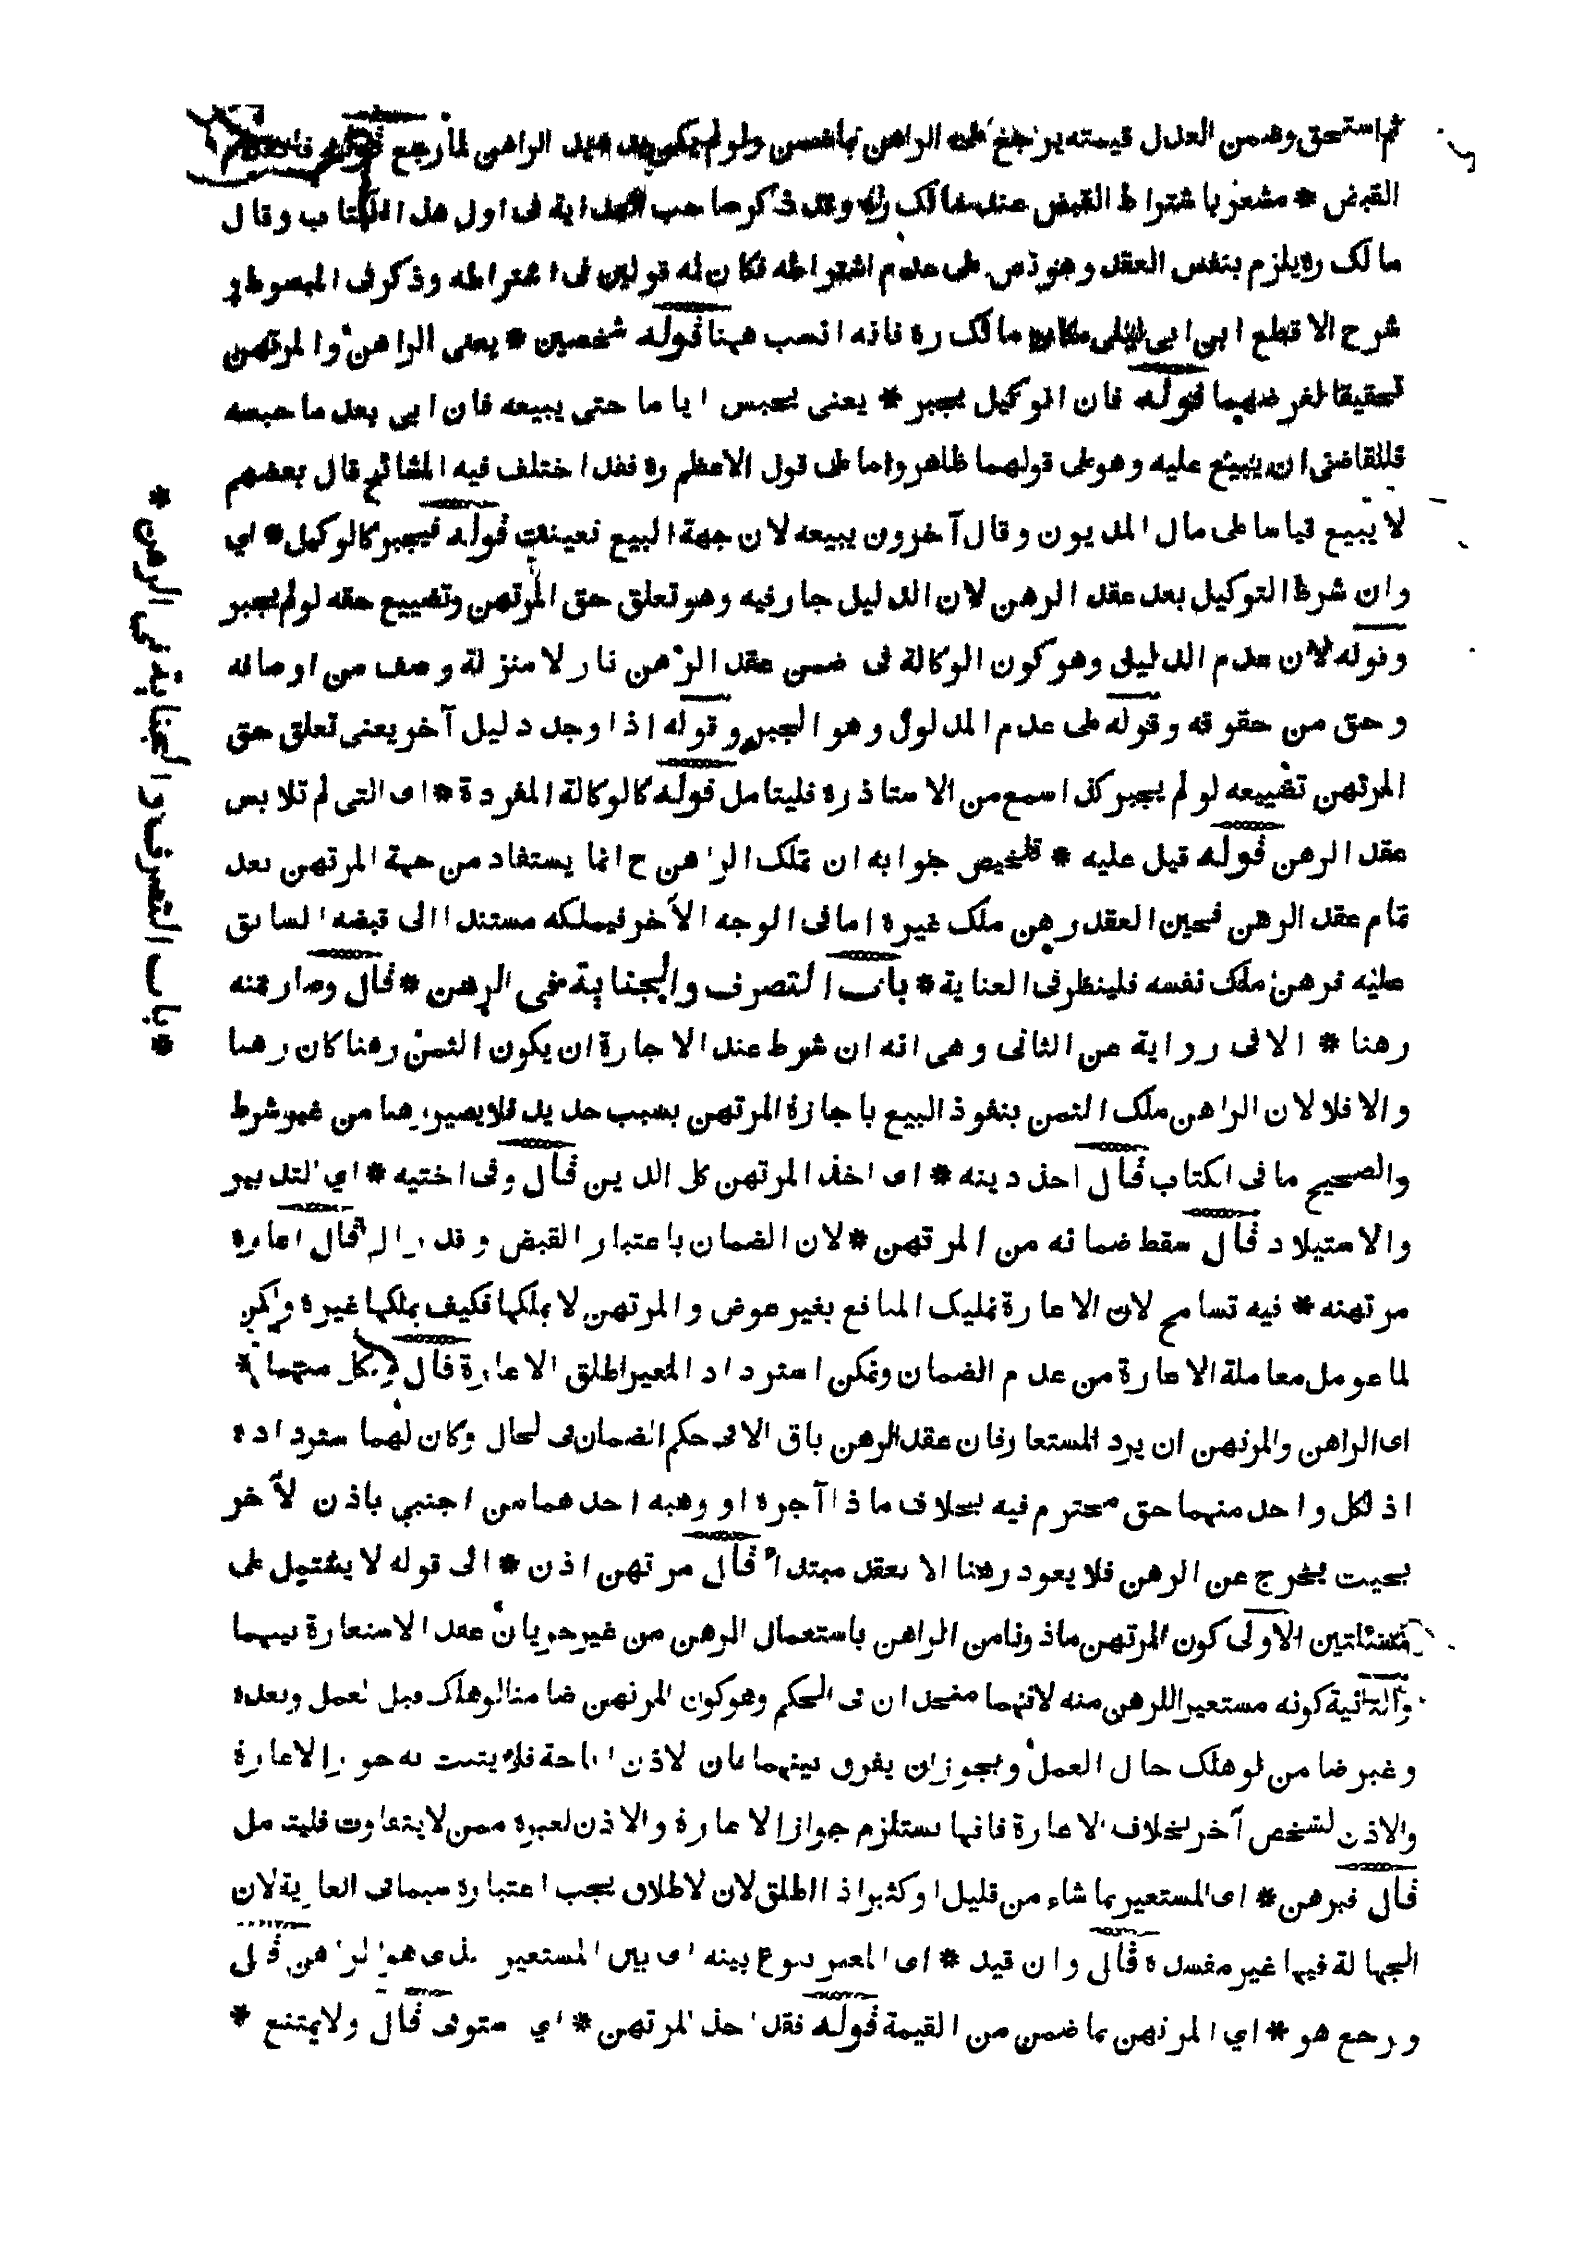 ثم استحق وضمن العدل قيمته يرجع على الراهن بالثمن ولو لم يكن بعد عبد الراهن لما رجع قوله
القبض * مشعر باشتراط القبض عند مالك ره وقد ذكر صاحب الهداية فى اول هذا الكتاب وقال
مالك ره يلزم بنفس العقد وهو نص على عدم اشتراطه فكان له قولين فى اشتراطه وذكر فى المبسوط و
شرح الاقطع ابن ابى ليلى مكان مالك ره فانه انسب ههنا قوله شخصين * يعنى الراهن والمرتهن
تحقيقا لغرضهما قوله فان الوكيل يجبر * يعنى يحبس اياما حتى يبيعه فان ابى بعد ما حبسه
فللقاضى ان يبيع عليه وهو على قولهما ظاهر واما على قول الاعظم ره فقد اختلف فيه المشائخ قال بعضهم
لا يبيع قياسا على مال المديون وقال آخرون يبيعه لان جهة البيع تعينت قوله فيجبر كالوكيل * اي
وان شرط التوكيل بعد عقد الرهن لان الدليل جار فيه وهو تعلق حق المرتهن وتضييع حقه لو لم يجبر
وقوله لان عدم الدليل وهو كون الوكالة فى ضمن عقد الرهن نازلا منزلة وصف من اوصافه
وحق من حقوقه وقوله على عدم المدلول وهو الجبر وقوله اذا وجد دليل آخر يعنى تعلق حق
المرتهن تضييعه لو لم يجبر كذا سمع من الاستاذ ره فليتامل قوله كالوكالة المفردة * اى التى لم تلابس
عقد الرهن قوله قيل عليه * تلخيص جوابه ان تملك الراهن ح انما يستفاد من جهة المرتهن بعد
تمام عقد الرهن فحين العقد رهن ملك غيره اما فى الوجه الآخر فيملكه مستندا الى قبضه السابق
عليه فرهن ملك نفسه فلينظر فى العناية * باب التصرف والجناية فى الرهن * قال وصار ثمنه
رهنا * الا فى رواية عن الثانى وهى انه ان شرط عند الاجارة ان يكون الثمن رهنا كان رهنا
والا فلا لان الراهن ملك الثمن بنفوذ البيع باجازة المرتهن بسبب جديد فلا يصير رهنا من غير شرط
والصحيح ما فى الكتاب قال اخذ دينه * اى اخذ المرتهن كل الدين قال وفى اختيه * اي التدبير
والاستيلاد قال سقط ضمانه من المرتهن * لان الضمان باعتبار القبض وقد زال قال اعاره
مرتهنه * فيه تسامح لان الاعارة تمليك المنافع بغير عوض والمرتهن لا يملكها فكيف يملكها غيره ولكن
لما عومل معاملة الاعارة من عدم الضمان وتمكن استرداد المعير اطلق الاعارة قال ولكل منهما *
اى الراهن والمرتهن ان يرد المستعار فان عقد الرهن باق الا فى حكم الضمان فى الحال وكان لهما استرداده
اذ لكل واحد منهما حق محترم فيه بخلاف ما اذا آجره او وهبه احدهما من اجنبي باذن الآخر
بحيث يخرج عن الرهن فلا يعود رهنا الا بعقد مبتدأ قال مرتهن اذن * الى قوله لا يشتمل على
مسئلتين الاولى كون المرتهن ماذونا من الراهن باستعمال الرهن من غير جريان عقد الاستعارة بينهما
والثانية كونه مستعيرا للرهن منه لانهما متحدان فى الحكم وهو كون المرتهن ضامنا لو هلك قبل العمل وبعده
وغير ضامن لو هلك حال العمل ويجوز ان يفرق بينهما بان الاذن اباحة فلا يثبت به جواز الاعارة
والاذن لشخص آخر بخلاف الاعارة فانها يستلزم جواز الاعارة والاذن لغيره ممن لا يتفاوت فليتامل
قال فيرهن * اى المستعير بما شاء من قليل او كثير اذا اطلق لان الاطلاق يجب اعتباره سيما فى العارية لان
الجهالة فيها غير مفسدة قال وان قيد * اى المعير بينه اى بين المستعير الذى هو الراهن قال
ورجع هو * اي المرتهن بما ضمن من القيمة قوله فقد اخذ المرتهن * اي استوفى قال ولا يمتنع *
* باب التصرف والجناية فى الرهن *